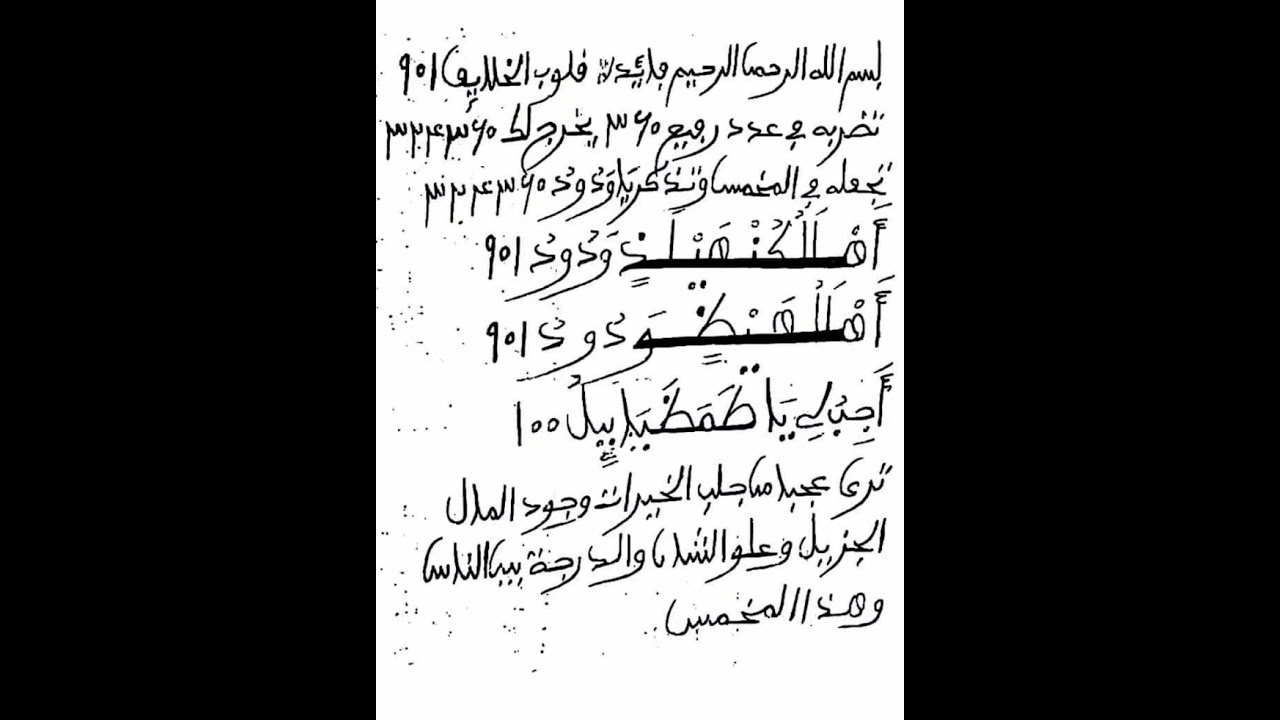 بسم الله الرحمن الرحيم فائدة قلوب الخلايق ٩٠١
تضربه في عدد رفيع ٣٦٠ يخرج لك ٣٢٤٣٦٠
تجعله في المخمس وتذكر يا ودود ٣٢٤٣٦٠
وَدُودُ ٩٠١
ودود ٩٠١
أَجِبْ لِي يَا ١٠٠
ترى عجبا من جلب الخيرات وجود المال
الجزيل وعلو الشان والدرجة بين الناس
وهذا المخمس